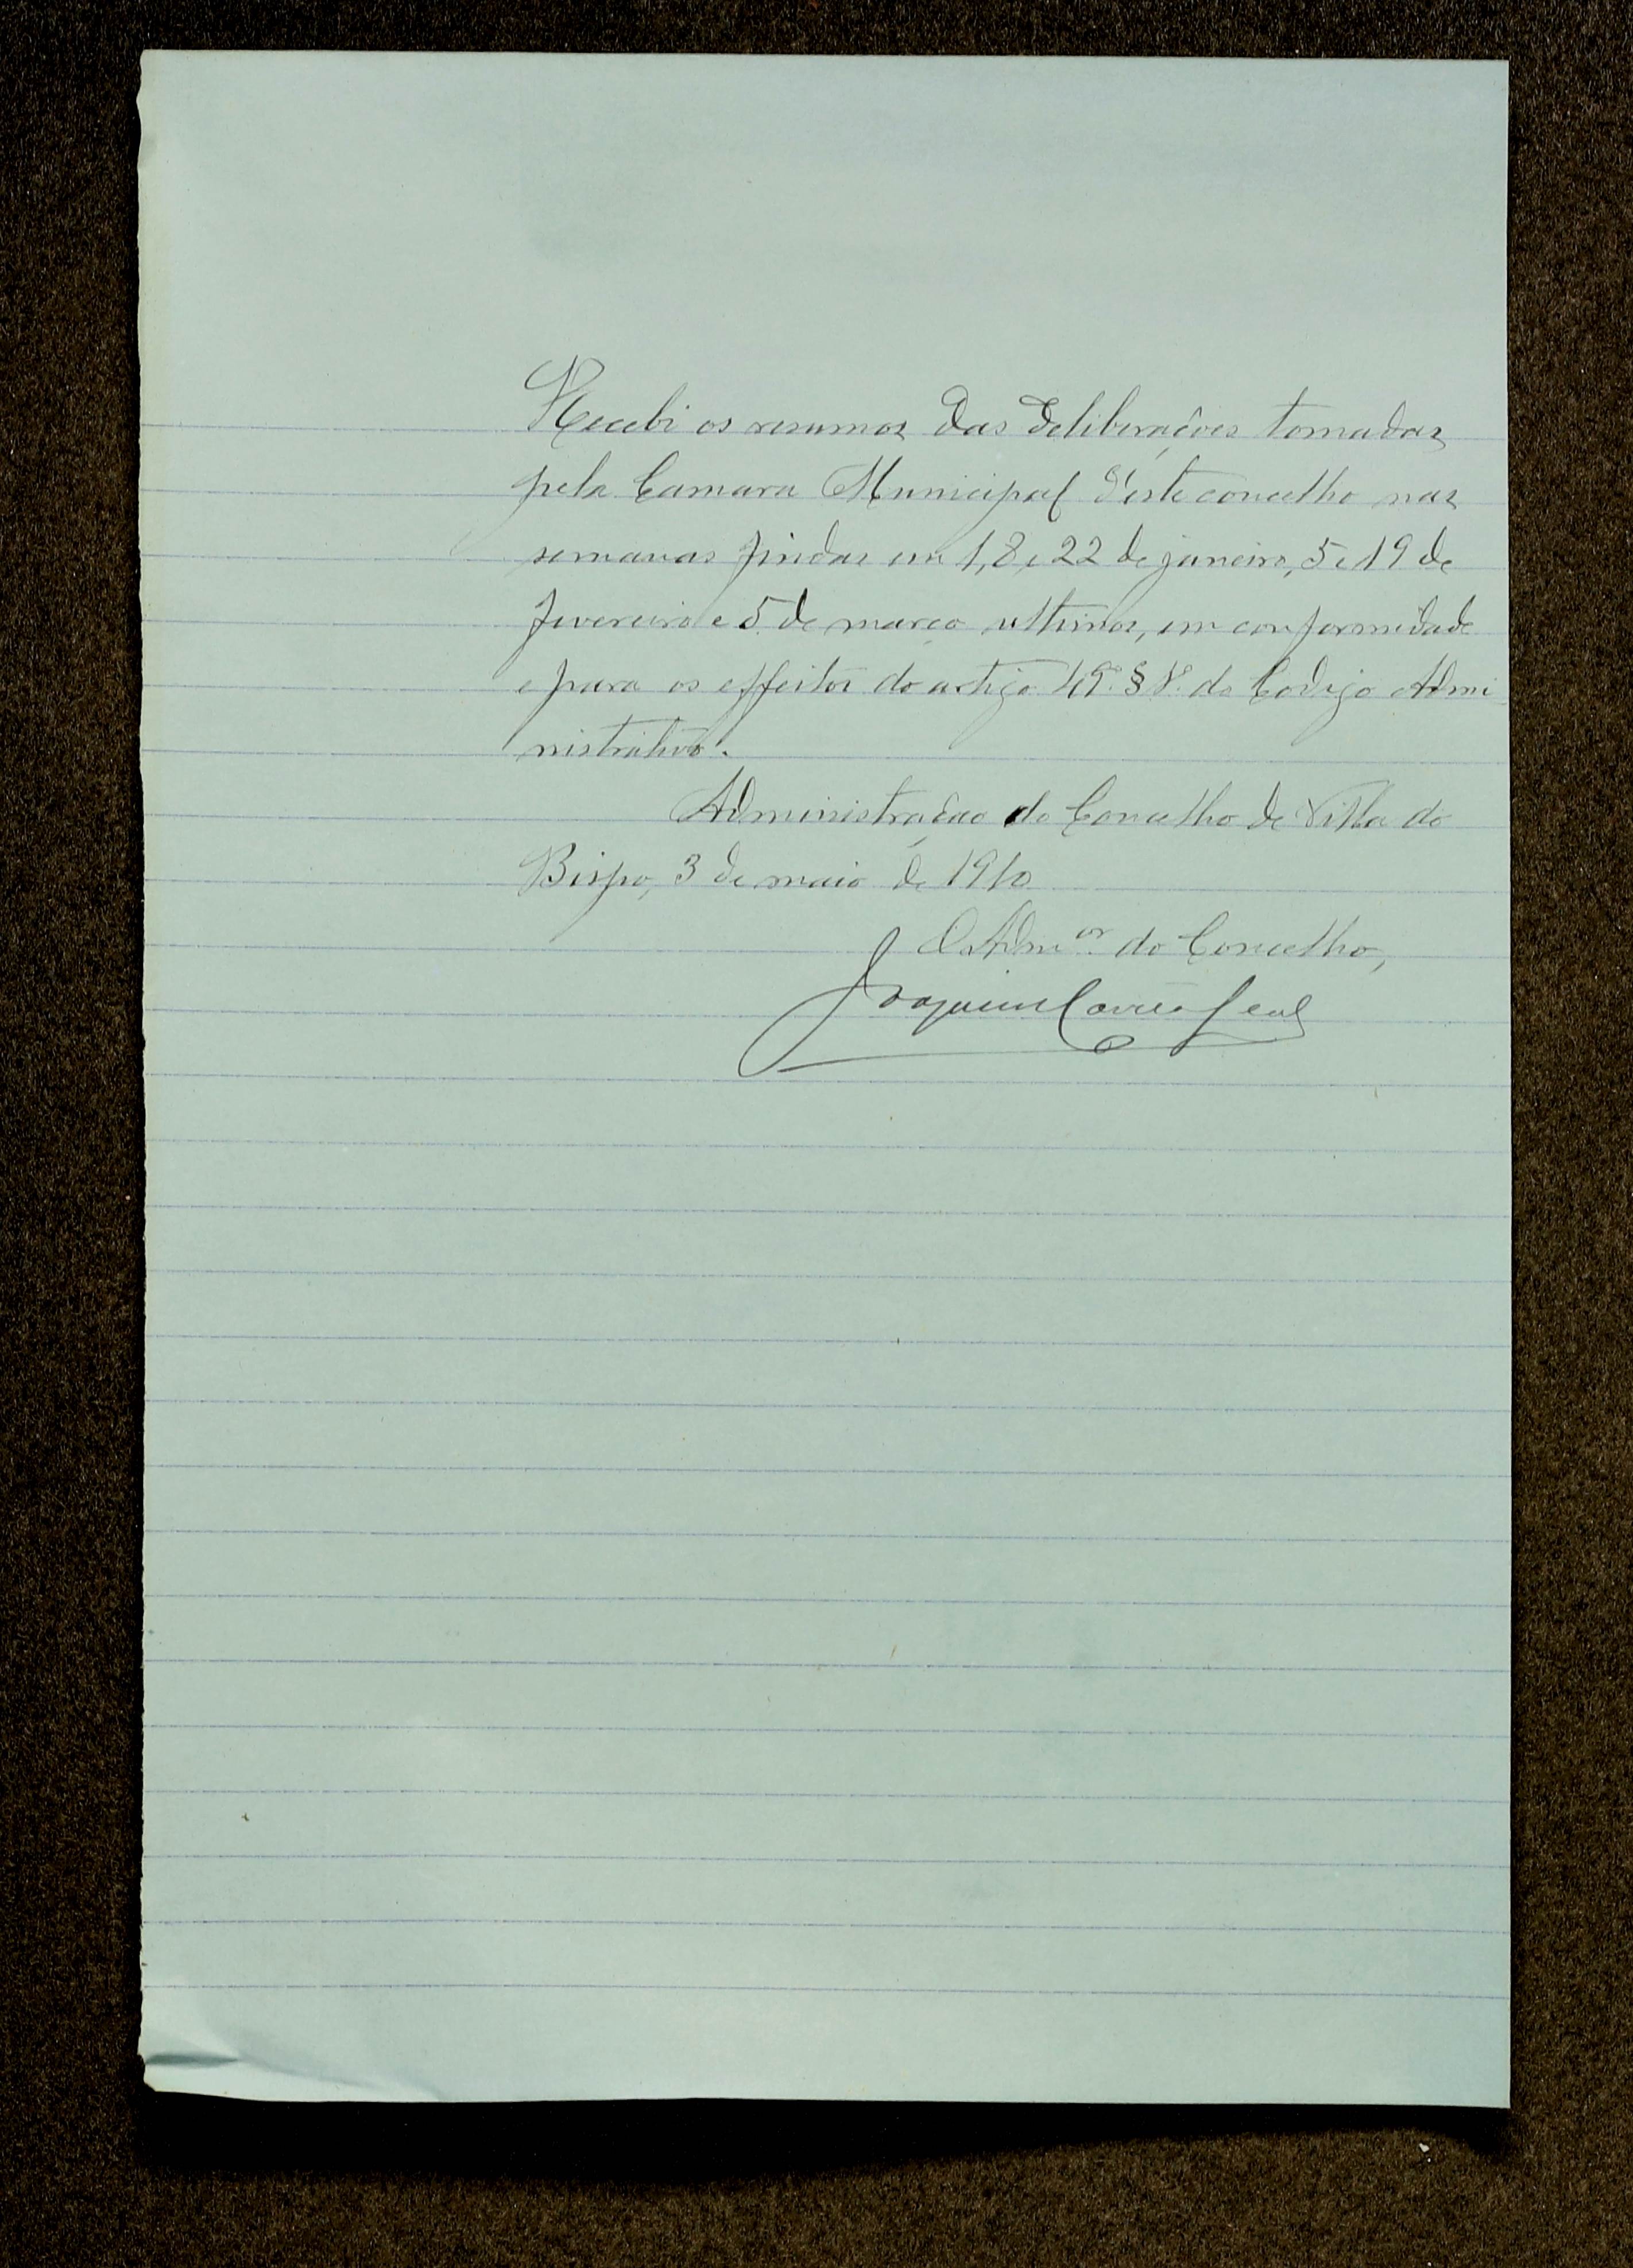 Recebi os resumos das deliberações tomadas
pela Camara Municipal d'este concelho nas
semanas findas em 1, 8, e 22 de janeiro, 5 e 19 de
fevereiro e 5 de março ultimos, em conformidade
e para os effeitos do artigo § do Codigo Admi
nistrativo.
Administração do Concelho de Villa do
Bispo, 3 de maio de 1910
O Adm.or do Concelho,
Joaquim Leal